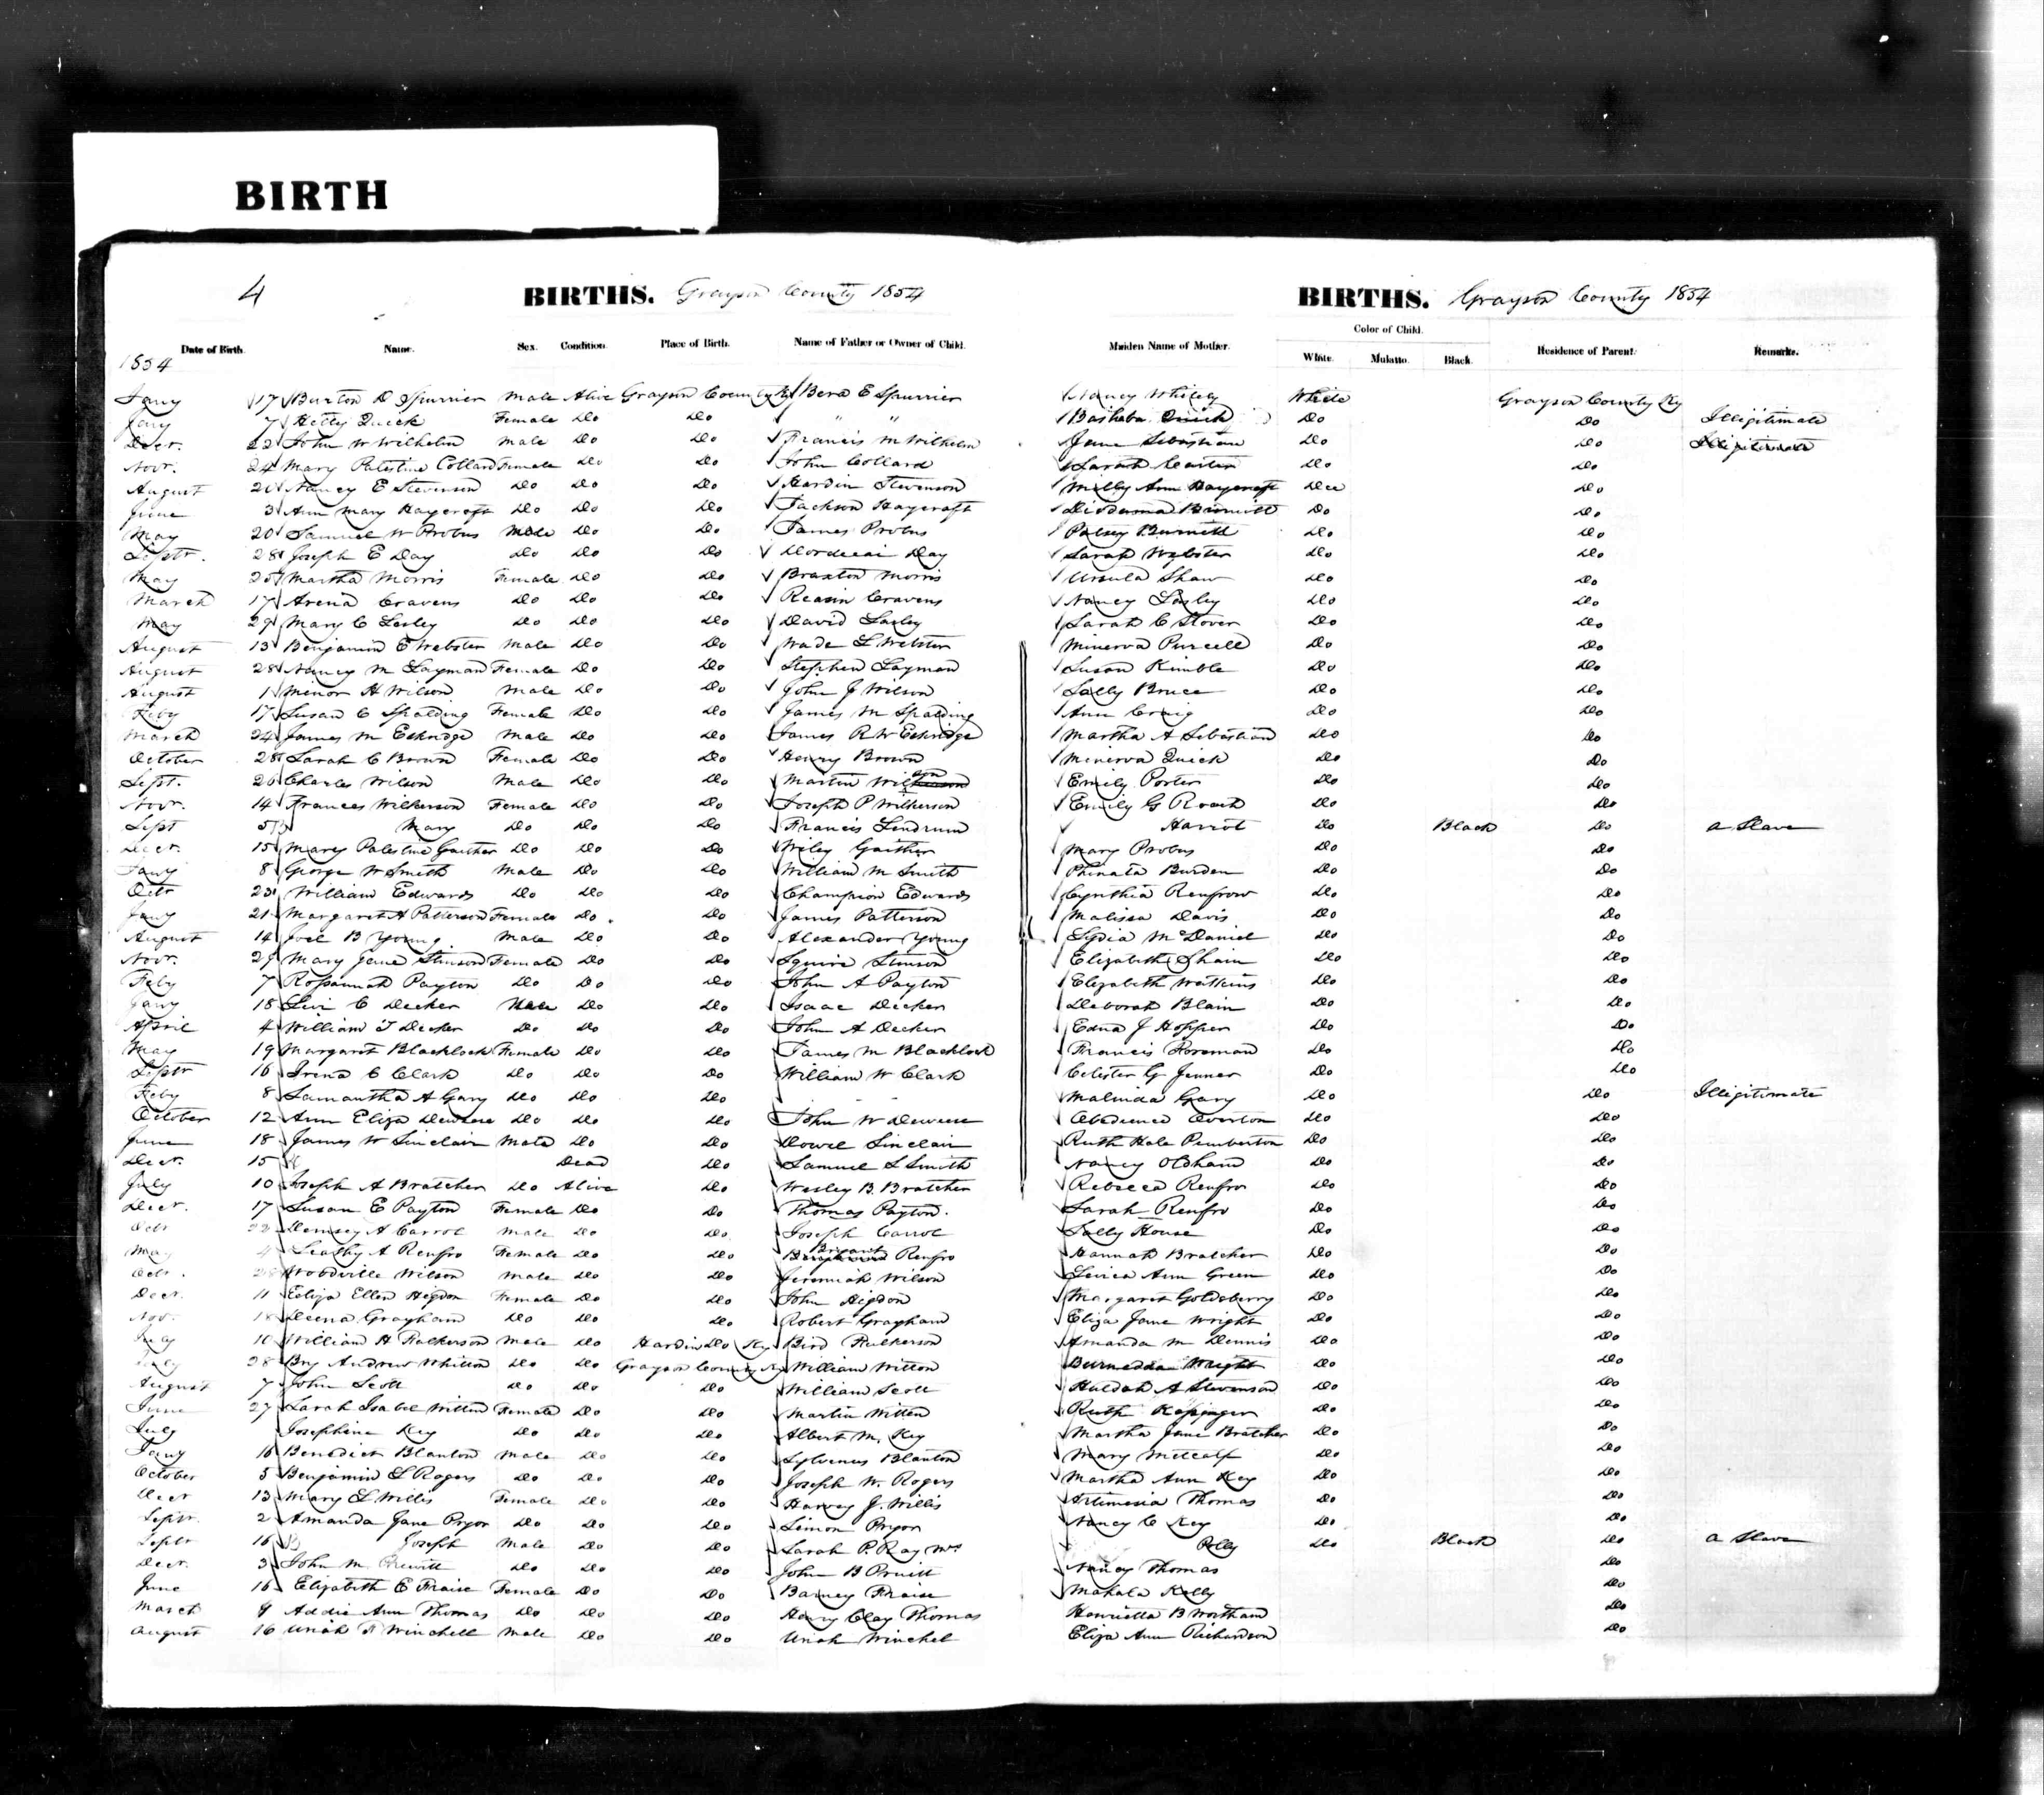 BIRTH
4
BIRTHS. Grayson County 1854
BIRTHS. Grayson County 1854
Color of Child.
Date of Birth. Name. Sex. Condition. Place of Birth. Name of Father or Owner of Child. Maiden Name of Mother. White. Mulatto. Black. Residence of Parent. Remarks.
1854
Jany 17 Burton D Spurrier Male Alive Grayson County Ky Bera E Spurrier Nancy Whitely White Grayson County Ky
Jany 7 Kitty Quick Female Do Do " " Bashaba Quick Do Do Illegitimate
Decr. 22 John W Wilhelm Male Do Do Francis M Wilhelm Jane Sebastian Do Do Illegitimate
Novr. 24 Mary Palestine Collard Female Do Do John Collard Sarah Carter Do Do
August 20 Nancy E Stevenson Do Do Do Hardin Stevenson Milly Ann Haycraft Do Do
June 3 Ann Mary Haycraft Do Do Do Jackson Haycraft Do Do
May 20 Samuel W Probus Male Do Do James Probus Patsey Burnett Do Do
Septr. 28 Joseph E Day Do Do Do Mordecai Day Sarah Webster Do Do
May 25 Martha Morris Female Do Do Braxton Morris Ursula Shaw Do Do
March 17 Arena Cravens Do Do Do Reason Cravens Nancy Lasley Do Do
May 29 Mary C Lesley Do Do Do David Lasley Sarah C Stover Do Do
August 13 Benjamin E Webster Male Do Do Wade L Webster Minerva Purcell Do Do
August 28 Nancy M Layman Female Do Do Stephen Layman Susan Kimble Do Do
August 1 Minor H Wilson Male Do Do John J Wilson Sally Bruce Do Do
Feby 17 Susan C Spalding Female Do Do James M Spalding Ann Craig Do Do
March 24 James M Eskridge Male Do Do James R W Eskridge Martha A Sebastian Do Do
October 28 Sarah C Brown Female Do Do Henry Brown Minerva Quick Do Do
Sept. 26 Charles Wilson Male Do Do Martin Wilson Emily Porter Do Do
Novr. 14 Frances Wilkerson Female Do Do Joseph P Wilkerson Emily G Roach Do Do
Sept 5 B Mary Do Do Do Francis Lindrum Harriot Do Black Do a Slave
Decr. 15 Mary Palestine Gaither Do Do Do Wiley Gaither Mary Probus Do Do
Jany 8 George W Smith Male Do Do William M Smith Phinata Burden Do Do
Octr 23 William Edwards Do Do Do Champion Edwards Cynthia Renfrow Do Do
Jany 21 Margaret A Patterson Female Do Do James Patterson Malissa Davis Do Do
August 14 Joel B Young Male Do Do Alexander Young Lydia McDaniel Do Do
Novr. 29 Mary Jane Stinson Female Do Do Squire Stinson Elizabeth Shain Do Do
Feby 7 Rossannah Payton Do Do Do John A Payton Elizabeth Watkins Do Do
Jany 18 Levi C Decker Male Do Do Isaac Decker Deborah Blain Do Do
April 4 William T Decker Do Do Do John A Decker Edna J Hopper Do Do
May 19 Margaret Blacklock Female Do Do James M Blacklock Francis Foreman Do Do
Septr 16 Irena C Clark Do Do Do William W Clark Celister G Jenner Do Do
Feby 8 Samantha A Gary Do Do Do Malinda Gary Do Do Illegitimate
October 12 Ann Eliza Deweese Do Do Do John W Deweese Obedience Overton Do Do
June 18 James W Sinclair Male Do Do Dowel Sinclair Ruth Hale Pemberton Do Do
Decr. 15 Dead Do Samuel S Smith Nancy Oldham Do Do
July 10 Joseph A Bratcher Do Alive Do Wesley B. Bratcher Rebecca Renfro Do Do
Decr. 17 Susan E Payton Female Do Do Thomas Payton. Sarah Renfro Do Do
Octr 22 Demsey A Carrol Male Do Do Joseph Carrol Sally House Do Do
May 4 A Renfro Female Do Do Bryant Renfro Hannah Bratcher Do Do
Octr. 28 Woodville Wilson Male Do Do Jeremiah Wilson Levica Ann Green Do Do
Decr. 11 Eliza Ellen Higdon Female Do Do John Higdon Margaret Goldsberry Do Do
Nov. 18 Deena Grayham Do Do Do Robert Grayham Eliza Jane Wright Do Do
July 10 William H Fulkerson Male Do Hardin Do Ky Bird Fulkerson Amanda M Dennis Do Do
July 28 Bry Andrew Whitton Do Do Grayson County Ky William Witton Burnedda Wright Do Do
August 7 John Scott Do Do Do William Scott Huldah A Stevenson Do Do
June 27 Sarah Isabel Witten Female Do Do Martin Witten Ruth Do Do
July Josephine Key Do Do Do Albert M. Key Martha Jane Bratcher Do Do
Jany 16 Benedict Blanton Male Do Do Sylvenus Blanton Mary Metcalf Do Do
October 5 Benjamin L Rogers Do Do Do Joseph W. Rogers Martha Ann Key Do Do
Decr 13 Mary E Willis Female Do Do Harvey J. Willis Artimesia Thomas Do Do
Septr. 2 Amanda Jane Pryor Do Do Do Simon Pryor Nancy C Key Do Do
Septr 16 B Joseph Male Do Do Sarah P. Ray Mrs Polly Do Black Do a Slave
Decr. 3 John M. Pruitt Do Do Do John B Pruitt Nancy Thomas Do
June 16 Elizabeth E Fraise Female Do Do Barney Fraise Mahala Kelly Do
March 9 Addie Ann Thomas Do Do Do Henry Clay Thomas Henrietta B Wortham Do
August 16 Uriah F Winchell Male Do Do Uriah Winchel Eliza Ann Richardson Do